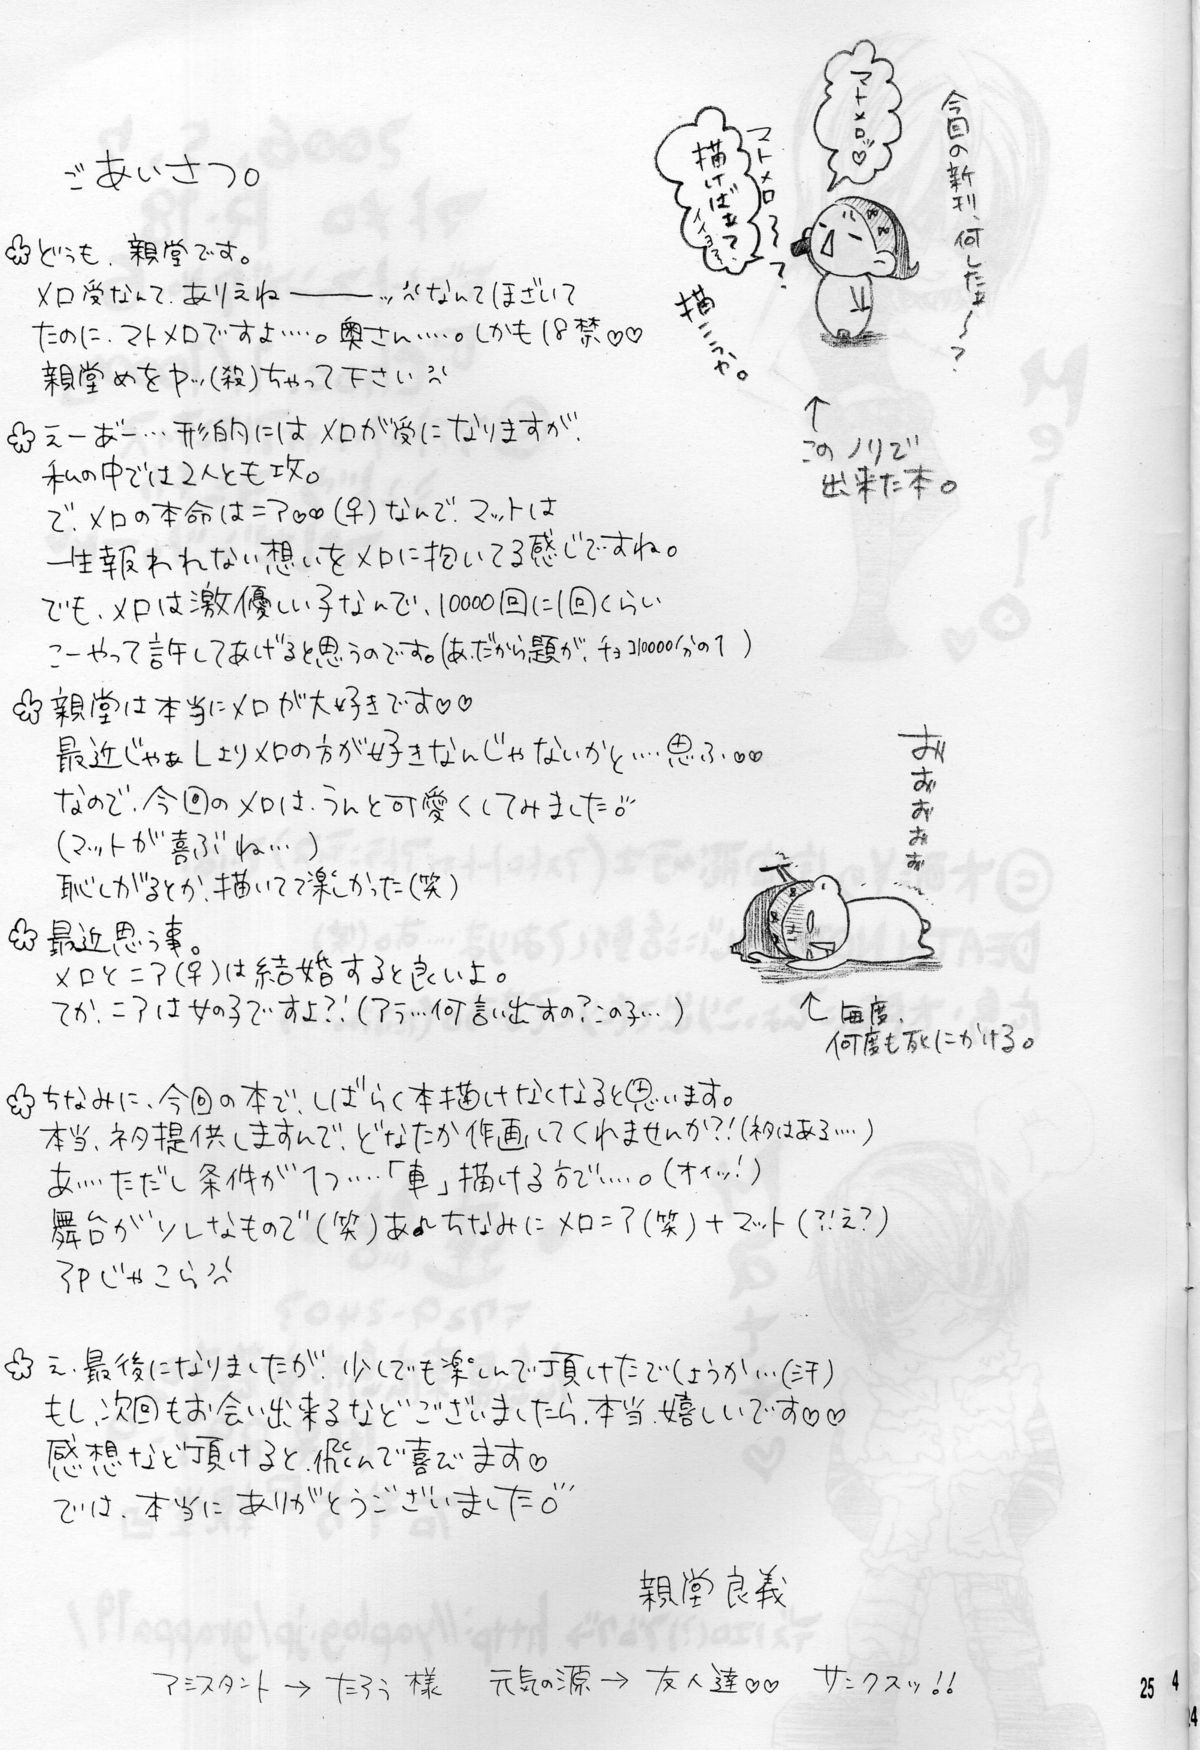 ごあいさつ。
どうも、親堂です。
メロ受なんて、ありえねーーーッ なんてほざいて
たのに、マトメロですよ……。奥さん……。しかも18禁♡♡
親堂めをヤッ(殺)ちゃって下さい
えーあー…形的にはメロが受になりますが、
私の中では2人とも攻。
で、メロの本命はニア♡♡(♀)なんで、マットは
一生報われない想いをメロに抱いてる感じですね。
でも、メロは激優しい子なんで、10000回に1回くらい
こーやって許してあげると思うのです。(あ、だから題が、チョコ10000分の1)
親堂は本当にメロが大好きです♡♡
最近じゃぁLよりメロの方が好きなんじゃないかと……思ふ♡♡
なので、今回のメロは、うんと可愛くしてみました
(マットが喜ぶね…)
恥しがるとか、描いてて楽しかった(笑)
最近思う事。
メロとニア(♀)は結婚すると良いよ。
てか、ニアは女の子ですよ?!(アラ…何言い出すの?この子…)
ちなみに、今回の本で、しばらく本描けなくなると思います。
本当、ネタ提供しますんで、どなたか作画してくれませんか?!(ネタはある…)
あ……ただし条件が1つ……「車」描ける方で……。(オイッ!)
舞台がソレなもので(笑)あ、ちなみにメロニア(笑)+マット(?!え?)
3Pじゃこら
え、最後になりましたが、少しでも楽しんで頂けたでしょうか…(汗)
もし、次回もお会い出来るなどございましたら、本当、嬉しいです♡♡
感想など頂けると、飛んで喜びます♡
では、本当にありがとうございました
親堂良義
アシスタント→たろう様 元気の源→友人達♡♡ サンクスッ!!
今回の新刊、何したよ〜?
マトメロッ♡
マトメロ〜?
描けばぁて、イイヨ
描こうや。
↑
このノリで
出来た本。
おおおおお
↑毎度、
何度も死にかける。
25
4
24